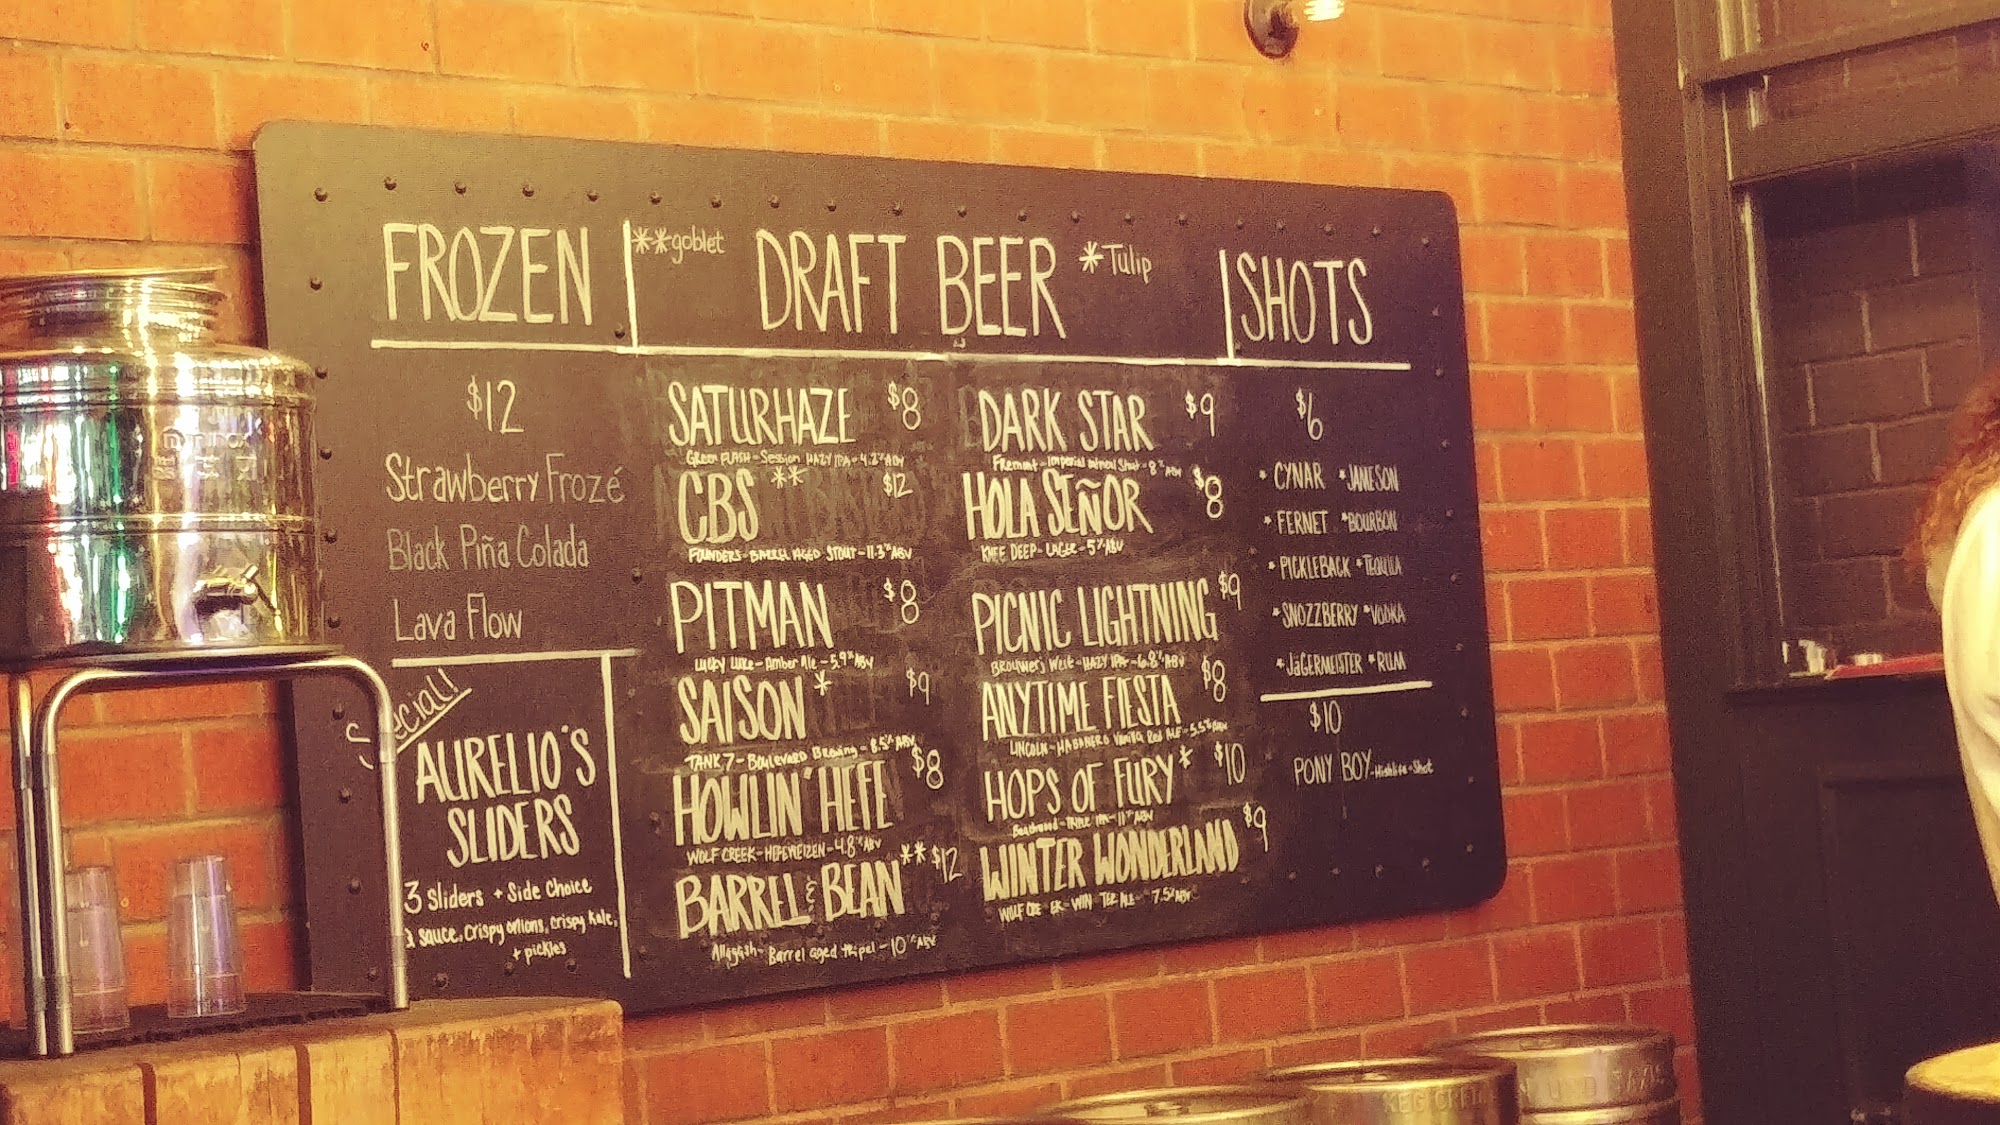 FROZEN
**goblet DRAFT BEER *Tulip
SHOTS
$12
Strawberry Frozé
Black Piña Colada
Lava Flow
Special!
AURELIO'S
SLIDERS
3 Sliders + Side Choice
sauce, crispy onions, crispy kale,
+ pickles
SATURHAZE $8
Green FLASH - Session HAZY IPA - 4.2% ABV
CBS ** $12
FOUNDERS - BARREL AGED STOUT - 11.3% ABV
PITMAN $8
Lucky Luke - Amber Ale - 5.9% ABV
SAISON * $9
TANK 7 - Boulevard Brewing - 8.5% ABV
HOWLIN' HEFE $8
WOLF CREEK - HEFEWEIZEN - 4.8% ABV
BARREL & BEAN ** $12
Allagash - Barrel aged tripel - 10% ABV
DARK STAR $9
Fremont - Imperial oatmeal Stout - 8% ABV
HOLA SEÑOR $8
KNEE DEEP - LAGER - 5% ABV
PICNIC LIGHTNING $9
BROUWER'S West - HAZY IPA - 6.8% ABV
ANYTIME FIESTA $8
LINCOLN - HABANERO Vanilla Red ALE - 5.5% ABV
HOPS OF FURY * $10
Beachwood - TRIPLE IPA - 11% ABV
WINTER WONDERLAND $9
WOLF CREEK - WINTER ALE - 7.5% ABV
$6
* CYNAR * JAMESON
* FERNET * BOURBON
* PICKLEBACK * TEQUILA
* SNOZZBERRY * VODKA
* JÄGERMEISTER * RUM
$10
PONY BOY - Highlife + Shot